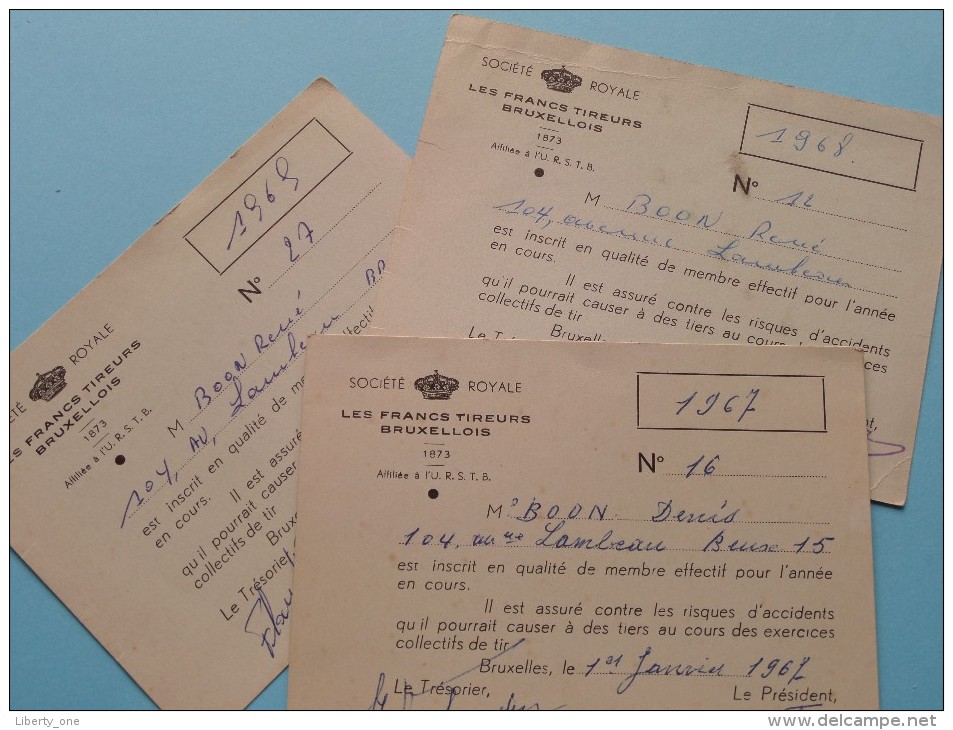 SOCIÉTÉ ROYALE
LES FRANCS TIREURS
BRUXELLOIS
1873
Affiliée à l'U. R. S. T. B.
1968.
N° 12
M BOON René
104, avenue Lambeau
est inscrit en qualité de membre effectif pour l'année
en cours.
Il est assuré contre les risques d'accidents
qu'il pourrait causer à des tiers au cours
collectifs de tir
Le Bruxelles
ROYALE
FRANCS TIREURS
BRUXELLOIS
1873
Affiliée à l'U. R. S. T. B.
1969
N° 27
M BOON René
104, AV, Lambeau
est inscrit en qualité de
en cours.
Il est assuré
qu'il pourrait
collectifs de tir
Le Trésorier,
SOCIÉTÉ ROYALE
LES FRANCS TIREURS
BRUXELLOIS
1873
Affiliée à l'U. R. S. T. B.
1967
N° 16
Mr BOON Denis
104, aue Lambeau Brux 15
est inscrit en qualité de membre effectif pour l'année
en cours.
Il est assuré contre les risques d'accidents
qu'il pourrait causer à des tiers au cours des exercices
collectifs de tir
Bruxelles, le 1er Janvier 1967
Le Trésorier, Le Président,
Liberty_one
delcampe.net